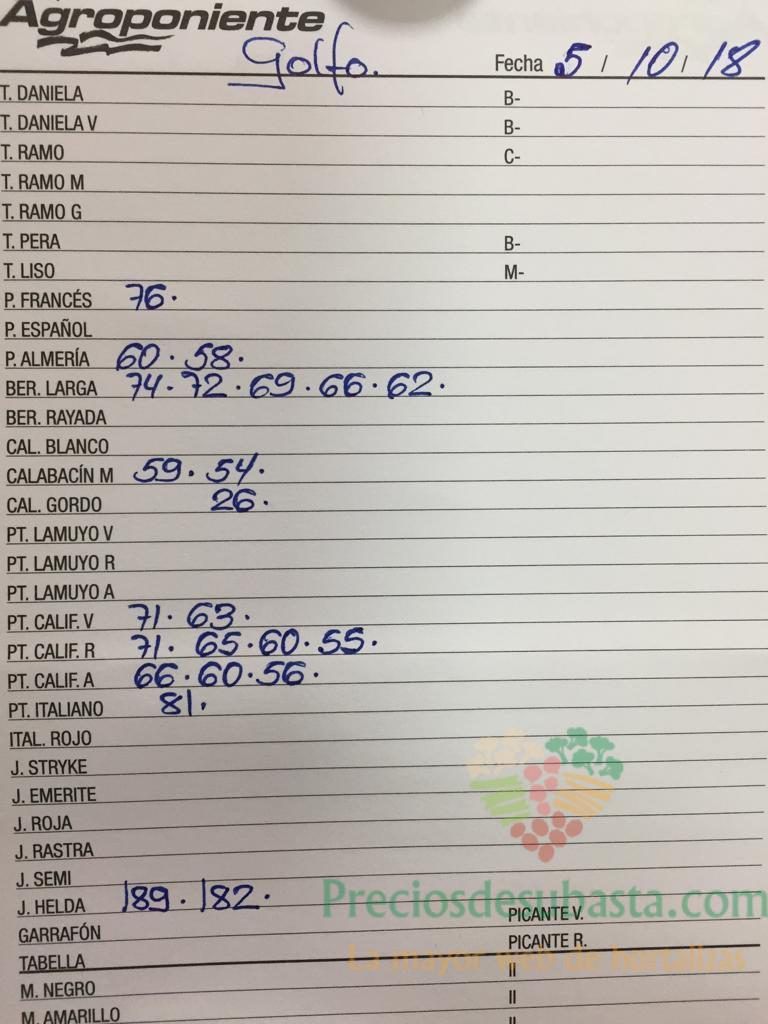 Agroponiente
Golfo. Fecha 5 / 10 / 18
T. DANIELA B-
T. DANIELA V B-
T. RAMO C-
T. RAMO M
T. RAMO G
T. PERA B-
T. LISO M-
P. FRANCÉS 76.
P. ESPAÑOL
P. ALMERÍA 60 . 58.
BER. LARGA 74 . 72 . 69 . 66 . 62.
BER. RAYADA
CAL. BLANCO
CALABACÍN M 59 . 54.
CAL. GORDO 26.
PT. LAMUYO V
PT. LAMUYO R
PT. LAMUYO A
PT. CALIF. V 71 . 63.
PT. CALIF. R 71 . 65 . 60 . 55.
PT. CALIF. A 66 . 60 . 56.
PT. ITALIANO 81.
ITAL. ROJO
J. STRYKE
J. EMERITE
J. ROJA
J. RASTRA
J. SEMI
J. HELDA 189 . 182.
Preciosdesubasta.com
GARRAFÓN PICANTE V.
TABELLA PICANTE R.
La mayor web de hortalizas
M. NEGRO II
M. AMARILLO II
II